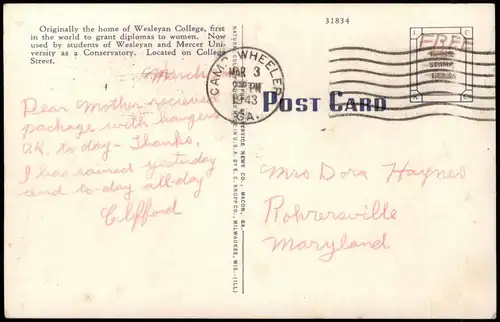 Originally the home of Wesleyan College, first
in the world to grant diplomas to women. Now
used by students of Wesleyan and Mercer Uni-
versity as a Conservatory. Located on College
Street.
31834
FREE
STAMP
HERE
CAMP WHEELER
MAR 3
PM
1943
GA.
POST CARD
March
Dear Mother recieved
package with hangers
O.K. to-day - Thanks.
I has rained yestuday
and to-day all-day
Clifford
SERVICE NEWS CO., MACON, GA.
BY E. C. KROPP CO., MILWAUKEE, WIS.-(ILL)
Mrs Dora Haynes
Rohrersville
Maryland